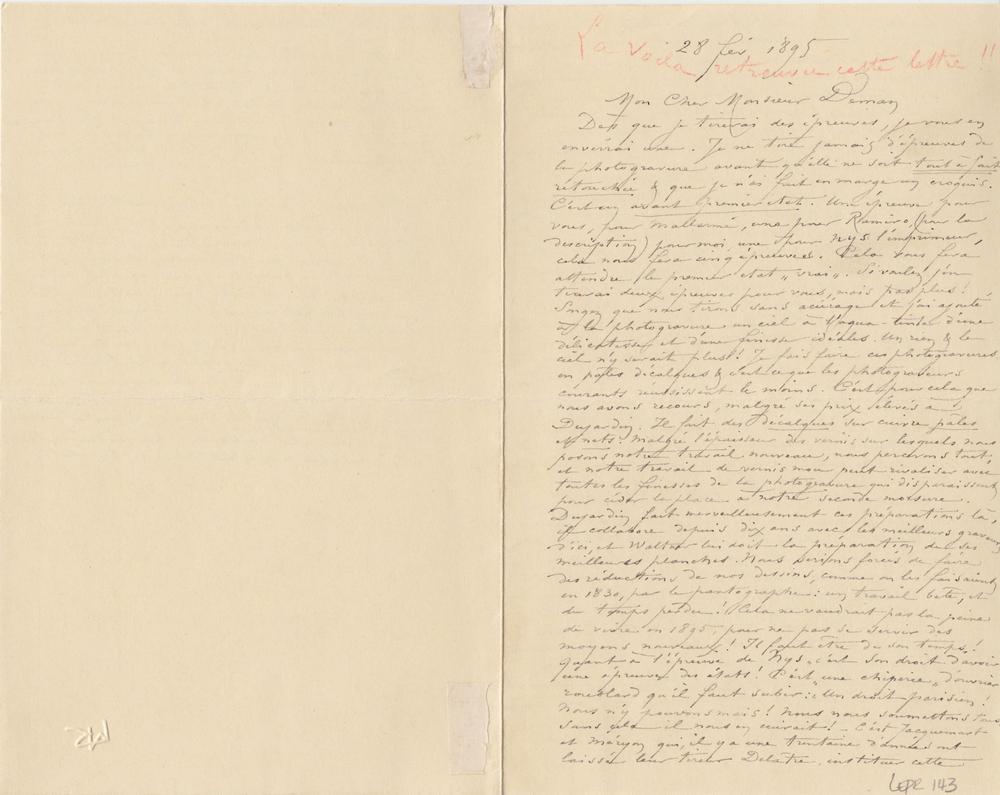 28 fév 1895
La voila retrouvée cette lettre !!
Mon Cher Monsieur Deman
Dès que je tirerai des épreuves, je vous en
enverrai une. Je ne tire jamais d'épreuves de
la photogravure avant qu'elle ne soit tout à fait
retouchée & que je n'ai fait en marge un croquis.
C'est un avant premier état. Une épreuve pour
vous, pour Mallarmé, une pour Ramiro, (pour la
description) pour moi, une pour Nys l'imprimeur,
cela nous fera cinq épreuves. Cela vous fera
attendre le premier état "vrai". Si voulez j'en
tirerai deux épreuves pour vous, mais pas plus!
Songez que nous tirons sans aciérage et j'ai ajouté
à la photogravure un ciel à l'aqua-tinte d'une
délicatesse et d'une finesse idéales. Un rien & le
ciel n'y serait plus! Je fais faire ces photogravures
en pâles décalques & c'est ce que les photograveurs
courants réussissent le moins. C'est pour cela que
nous avons recours, malgré ses prix élevés à
Dujardin. Il fait des décalques sur cuivre pâles
& nets. Malgré l'épaisseur des vernis sur lesquels nous
posons notre travail nouveau, nous percevons tout,
et notre travail de vernis mou peut rivaliser avec
toutes les finesses de la photogravure qui disparaissent
pour céder la place à notre seconde morsure.
Dujardin fait merveilleusement ces préparations là,
il collabore depuis dix ans avec les meilleurs graveurs
d'ici, et Waltner lui doit la préparation de ses
meilleures planches. Nous serions forcés de faire
des réductions de nos dessins, comme on les faisaient
en 1830, par le pantographe: un travail bête, et
du temps perdu! Cela ne vaudrait pas la peine
de vivre en 1895, pour ne pas se servir des
moyens nouveaux! Il faut être de son temps!
Quant à l'épreuve de Nys, c'est son droit d'avoir
une épreuve des états! C'est "une chiperie" d'ouvrier
roublard qu'il faut subir: Un droit parisien!
Nous n'y pouvons mais! Nous nous soumettons tous
sans cela il nous en cuirait! C'est Jacquemart
et Méryon qui, il y a une trentaine d'années ont
laissé leur tireur Delatre, instituer cette
LEPR 143